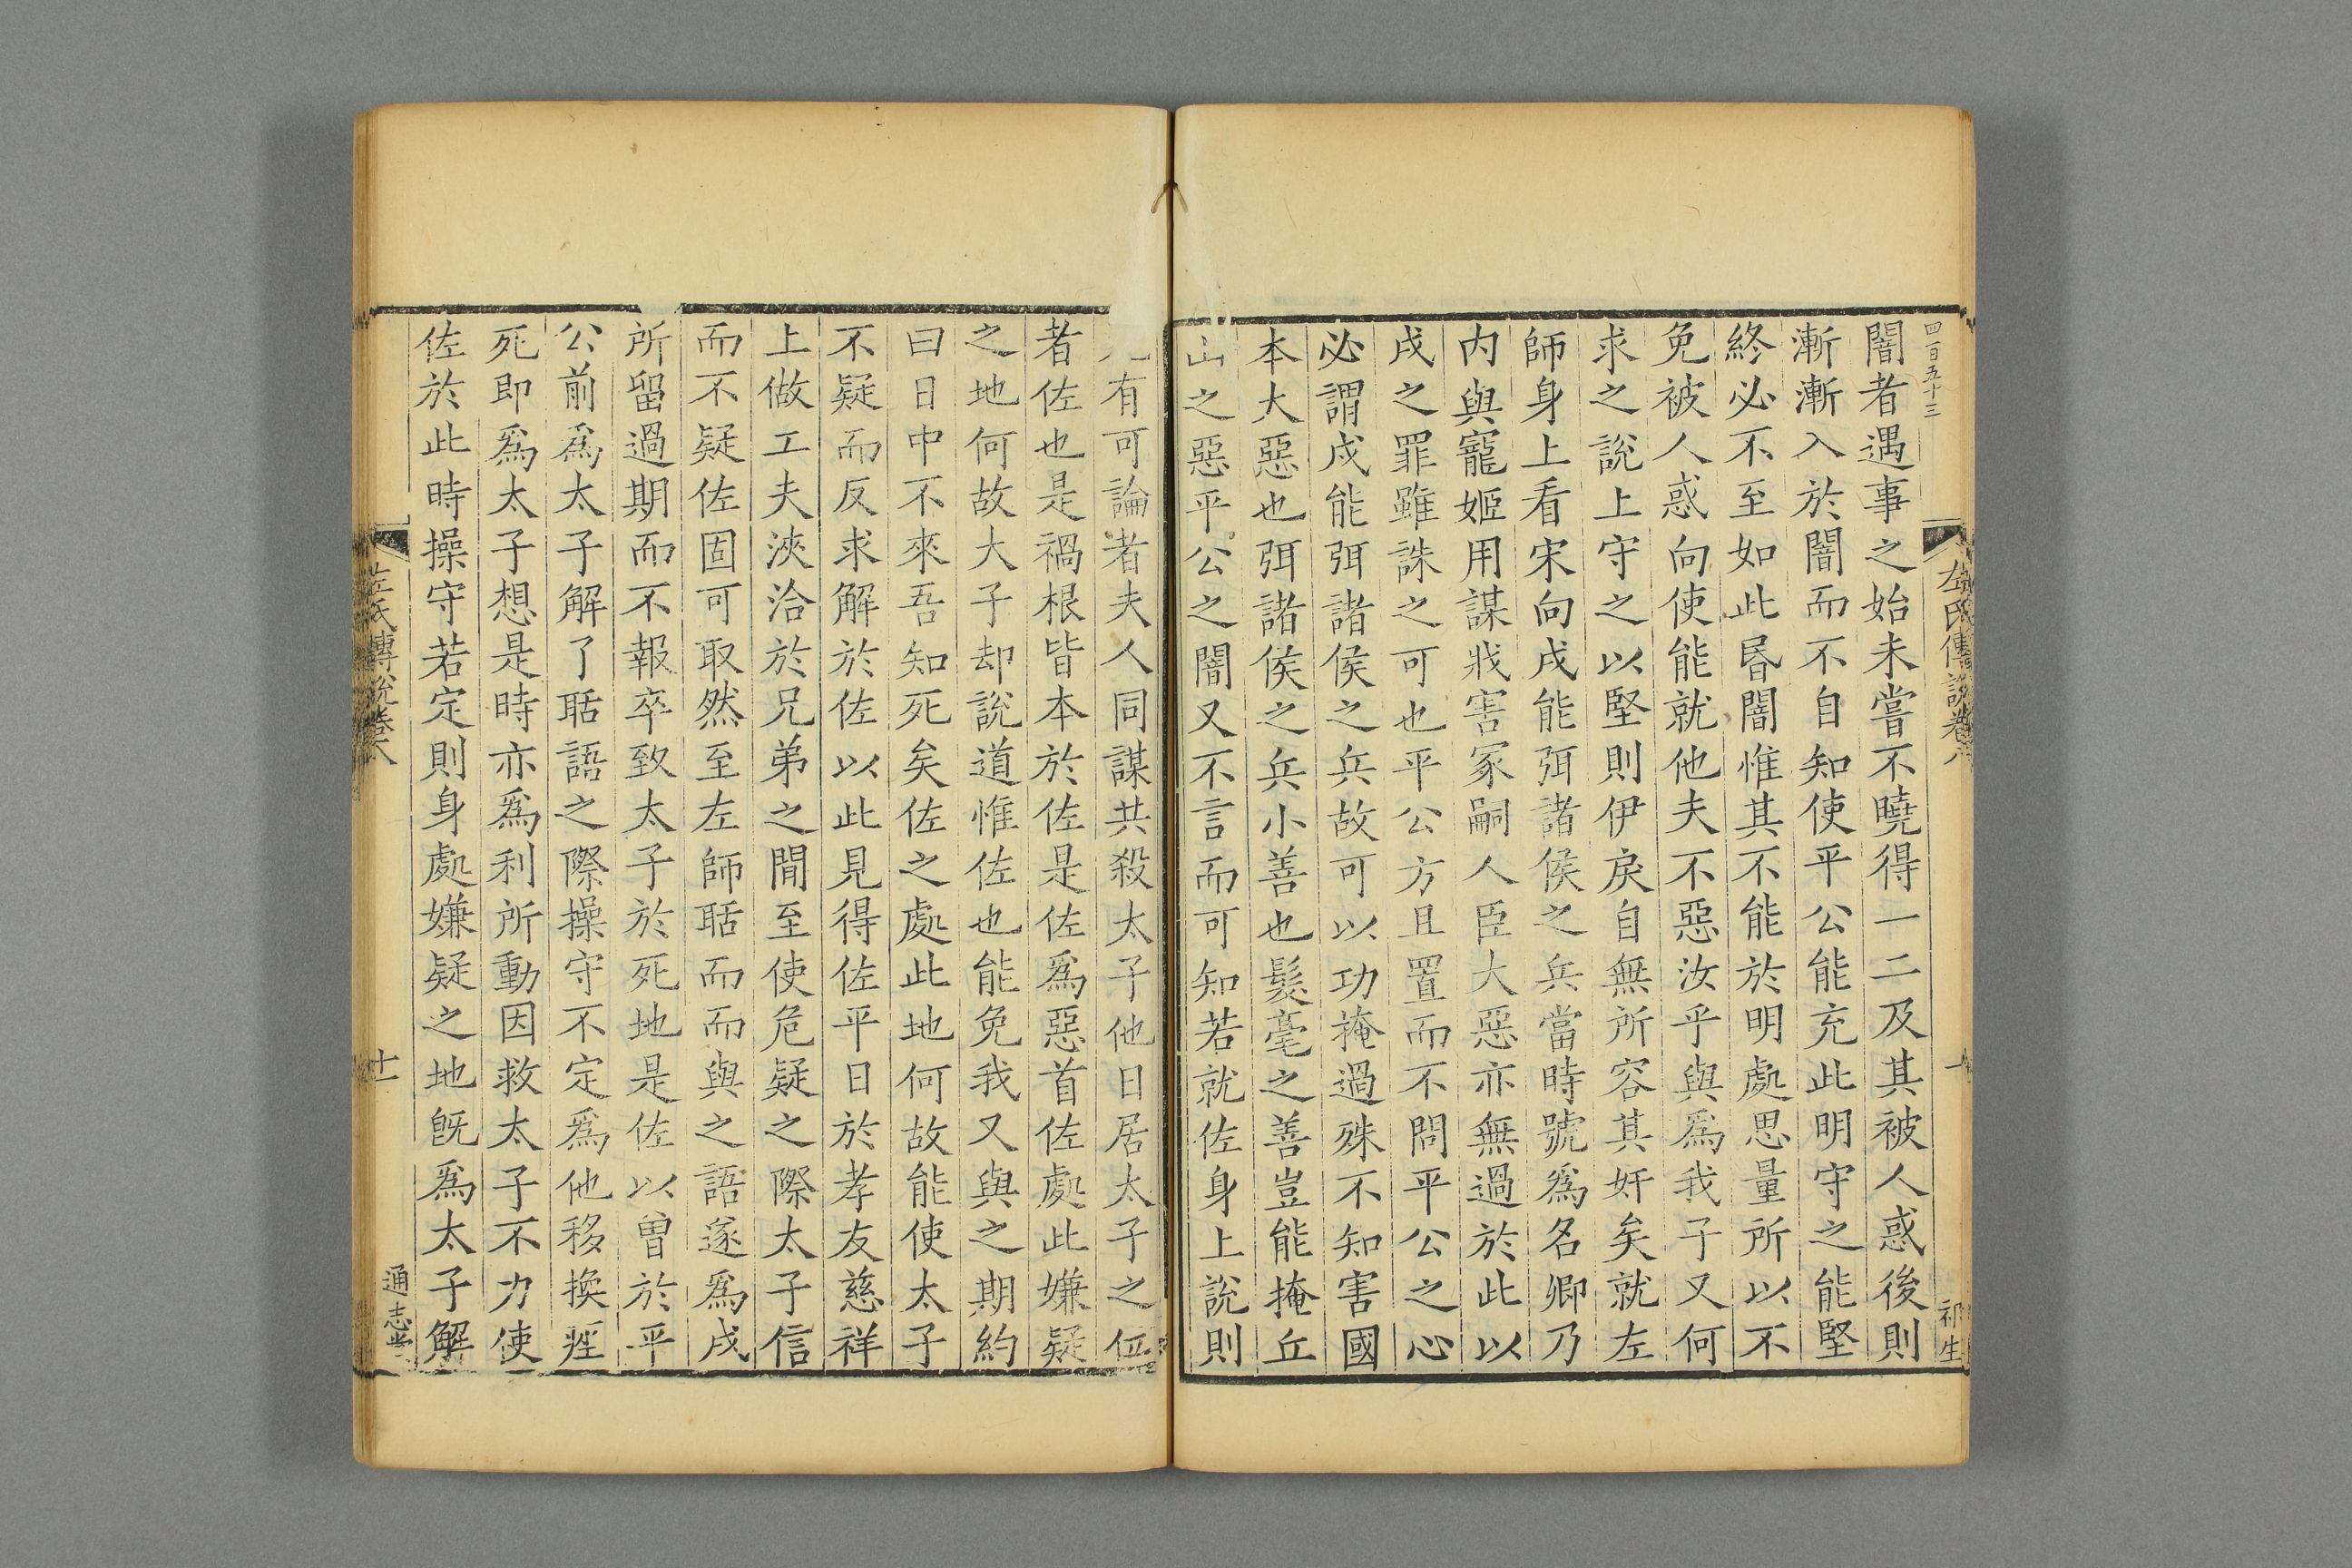 四百五十三
左氏傳説卷八
十
祁生
闇者遇事之始未嘗不曉得一二及其被人惑後則
漸漸入於闇而不自知使平公能充此明守之能堅
終必不至如此昏闇惟其不能於明處思量所以不
免被人惑向使能就他夫不惡汝乎與爲我子又何
求之說上守之以堅則伊戾自無所容其奸矣就左
師身上看宋向戌能弭諸侯之兵當時號爲名卿乃
内與寵姬用謀戕害冢嗣人臣大惡亦無過於此以
戌之罪雖誅之可也平公方且置而不問平公之心
必謂戌能弭諸侯之兵故可以功掩過殊不知害國
本大惡也弭諸侯之兵小善也髮毫之善豈能掩丘
山之惡平公之闇又不言而可知若就佐身上說則
有可論者夫人同謀共殺太子他日居太子之位
者佐也是禍根皆本於佐是佐爲惡首佐處此嫌疑
之地何故大子却說道惟佐也能免我又與之期約
曰日中不來吾知死矣佐之處此地何故能使太子
不疑而反求解於佐以此見得佐平日於孝友慈祥
上做工夫浹洽於兄弟之間至使危疑之際太子信
而不疑佐固可取然至左師聒而而與之語遂爲戌
所留過期而不報卒致太子於死地是佐以曽於平
公前爲太子解了聒語之際操守不定爲他移換痓
死即爲太子想是時亦爲利所動因救太子不力使
佐於此時操守若定則身處嫌疑之地旣爲太子解
左氏傳説卷八
十一
通志堂